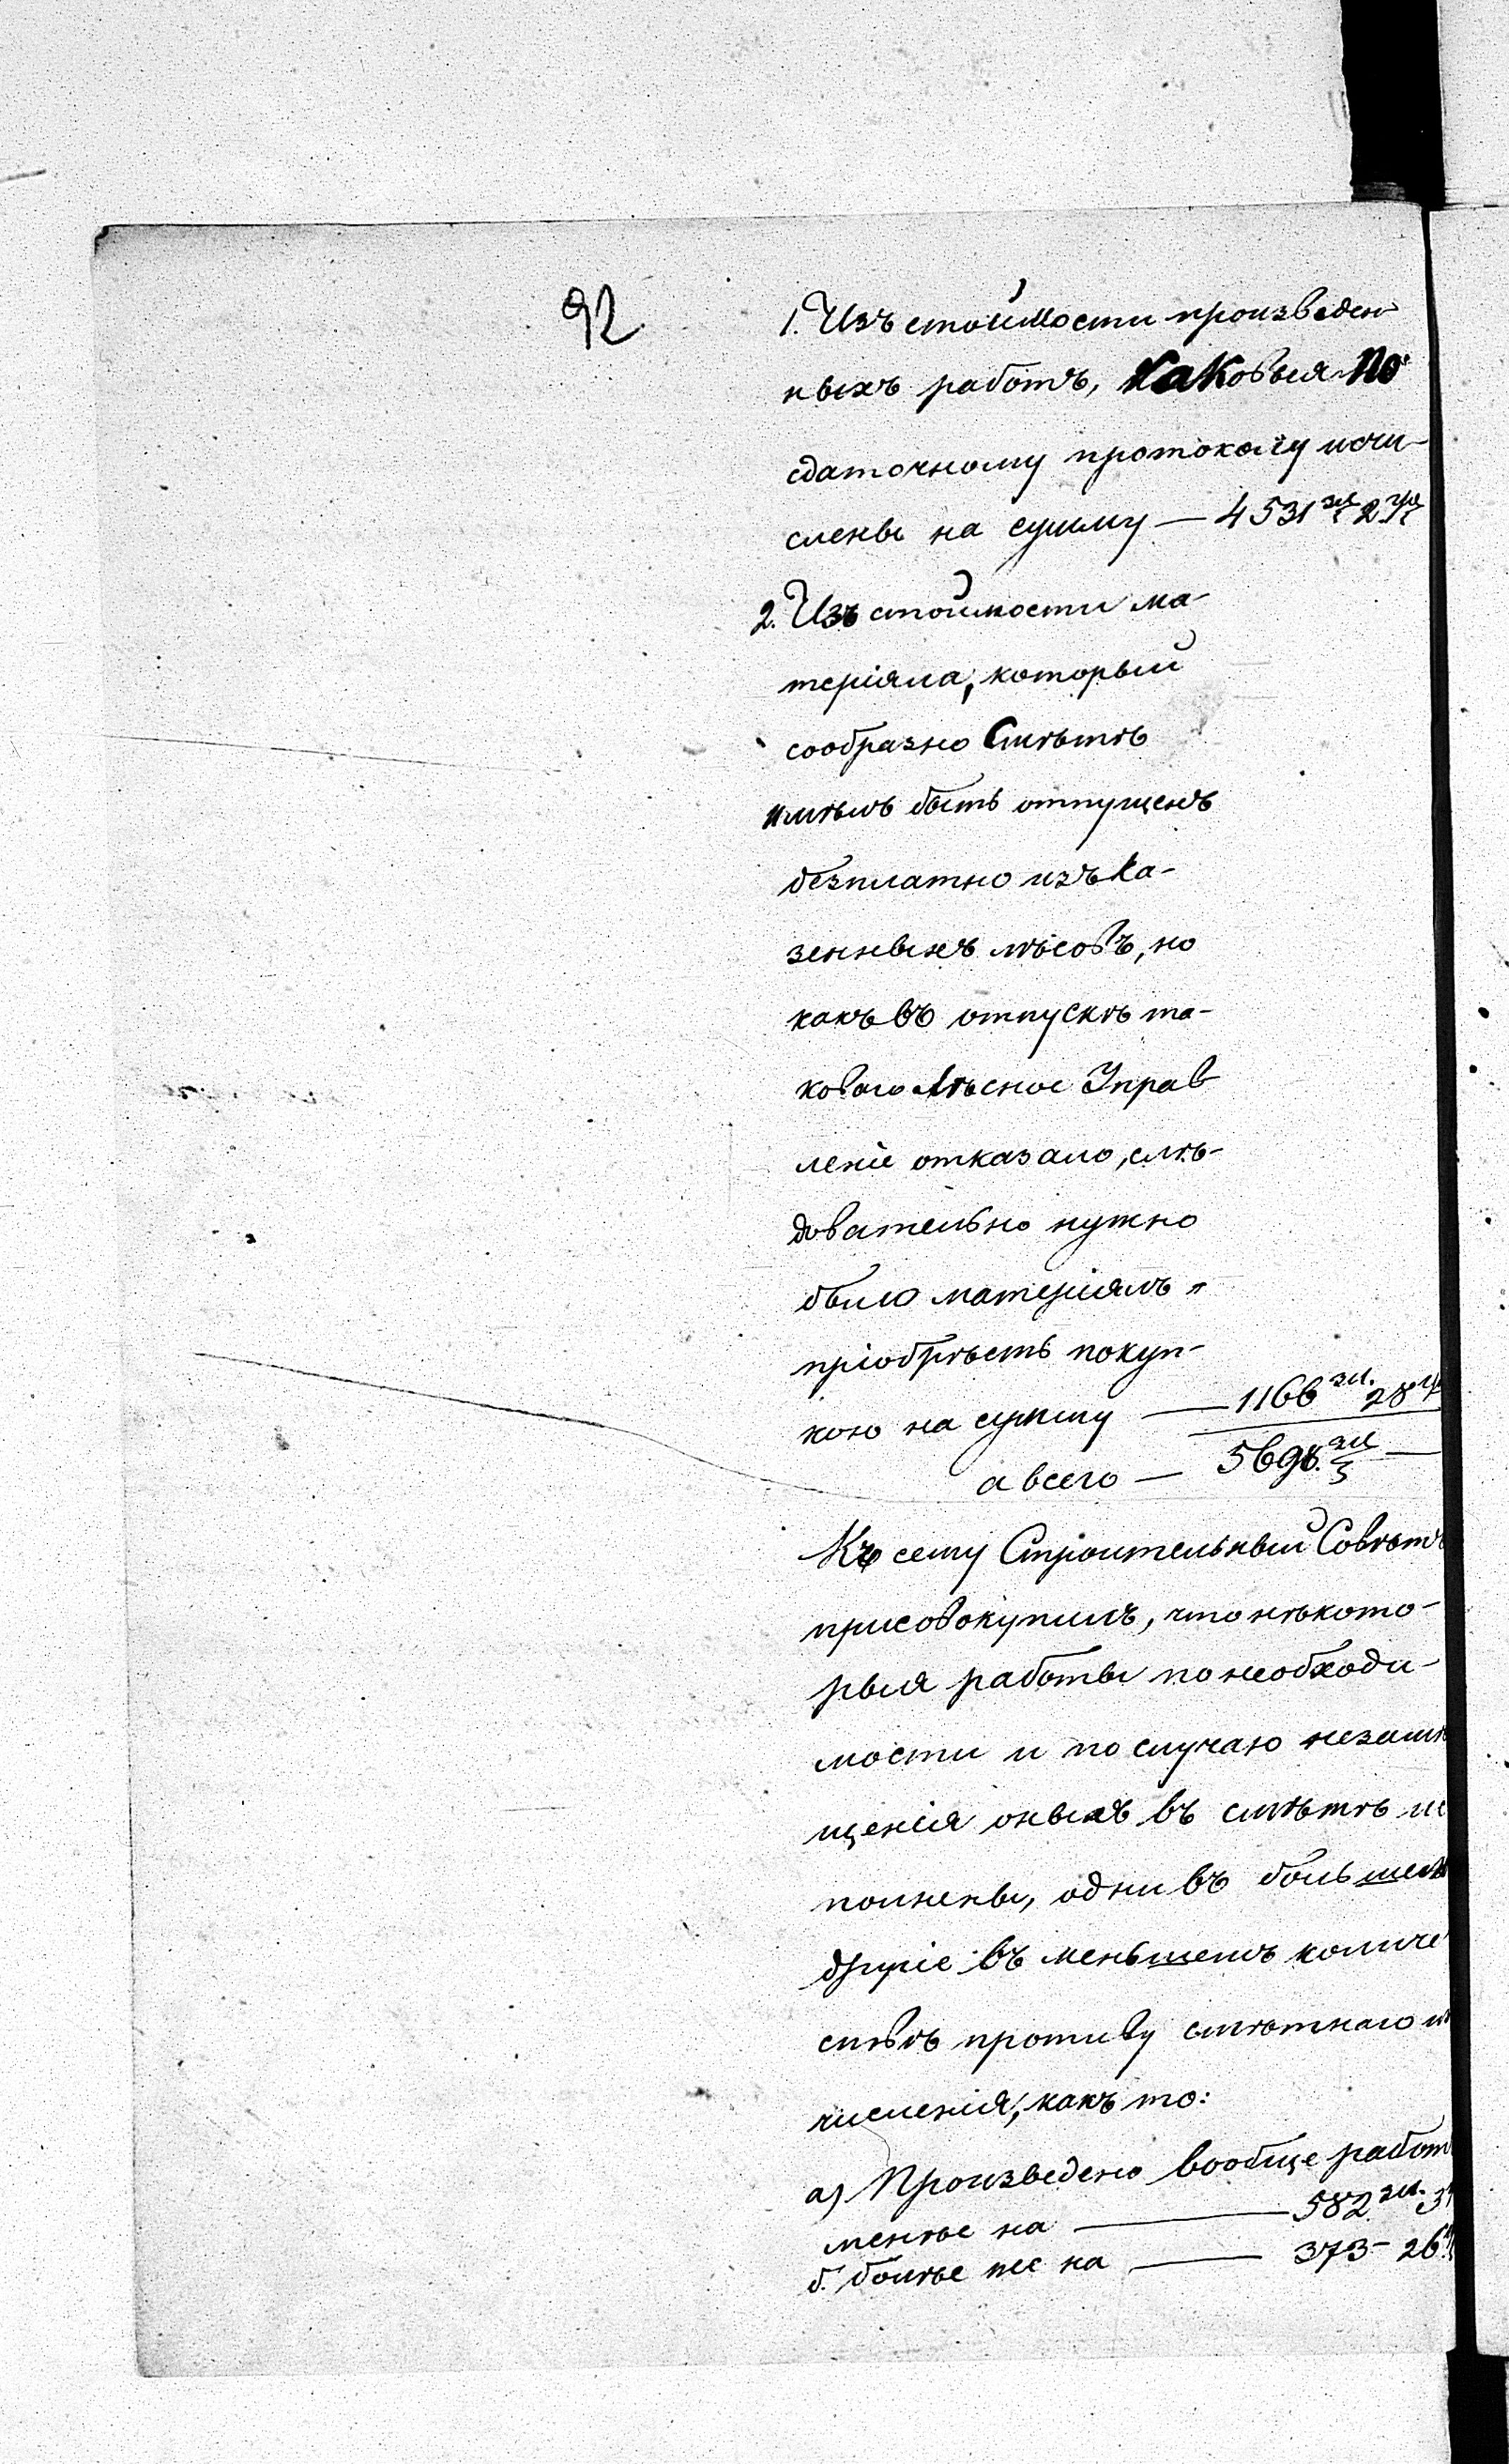 92
1. Изъ стоимости произведен
ныхъ работъ, каковыя по
сдаточному протоколу исчи-
слены на сумму — 4531 зл 2 гр
2. Изъ стоимости ма-
теріяла, который
сообразно Смѣтѣ
имѣлъ быть отпущенъ
безплатно изъ ка-
зенныхъ лѣсовъ, но
какъ въ отпускѣ та-
коваго Лѣсное Управ
леніе отказало, слѣ-
довательно нужно
было матеріялъ
пріобрѣсть покуп-
кою на сумму — 1166 зл. 28 гр
а всего — 5698 зл —
Къ сему Строительный Совѣтъ
присовокупилъ, что нѣкото-
рыя работы по необходи-
мости и по случаю незамѣ
щенія оныхъ въ смѣтѣ ис
полнены, одни въ большемъ
другіе въ меньшемъ количе
ствѣ противу смѣтнаго ис
численія, какъ то:
а) Произведено вообще работъ
менѣе на — 582 зл. 3
б. болѣе же на — 373 - 26